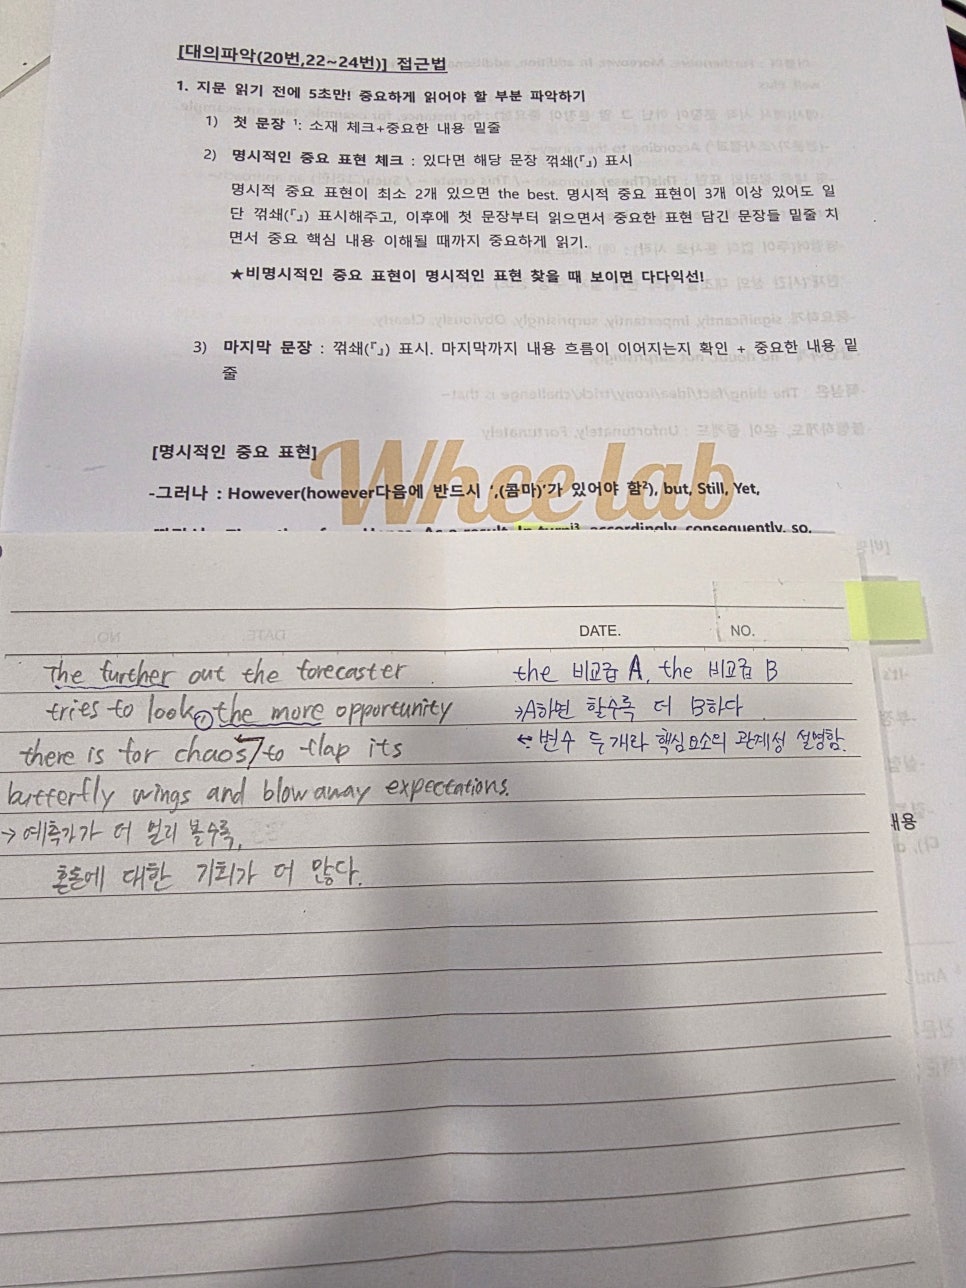 [대의파악(20번,22~24번)] 접근법
1. 지문 읽기 전에 5초만! 중요하게 읽어야 할 부분 파악하기
1) 첫 문장 ¹: 소재 체크+중요한 내용 밑줄
2) 명시적인 중요 표현 체크 : 있다면 해당 문장 꺾쇄(『』) 표시
명시적 중요 표현이 최소 2개 있으면 the best. 명시적 중요 표현이 3개 이상 있어도 일
단 꺾쇄(『』) 표시해주고, 이후에 첫 문장부터 읽으면서 중요한 표현 담긴 문장들 밑줄 치
면서 중요 핵심 내용 이해될 때까지 중요하게 읽기.
★비명시적인 중요 표현이 명시적인 표현 찾을 때 보이면 다다익선!
3) 마지막 문장 : 꺾쇄(『』) 표시. 마지막까지 내용 흐름이 이어지는지 확인 + 중요한 내용 밑
줄
[명시적인 중요 표현]
Wheelab
-그러나 : However(however다음에 반드시 ‘,(콤마)’가 있어야 함²), but, Still, Yet,
As a result, In turn³, accordingly, consequently, so,
DATE. NO.
The further out the forecaster
tries to look, the more opportunity
there is for chaos to flap its
butterfly wings and blow away expectations.
→ 예측가가 더 멀리 볼수록,
혼돈에 대한 기회가 더 많다.
the 비교급 A, the 비교급 B
→A하면 할수록 더 B하다
← 변수 두 개라 핵심요소의 관계성 설명함.
내용